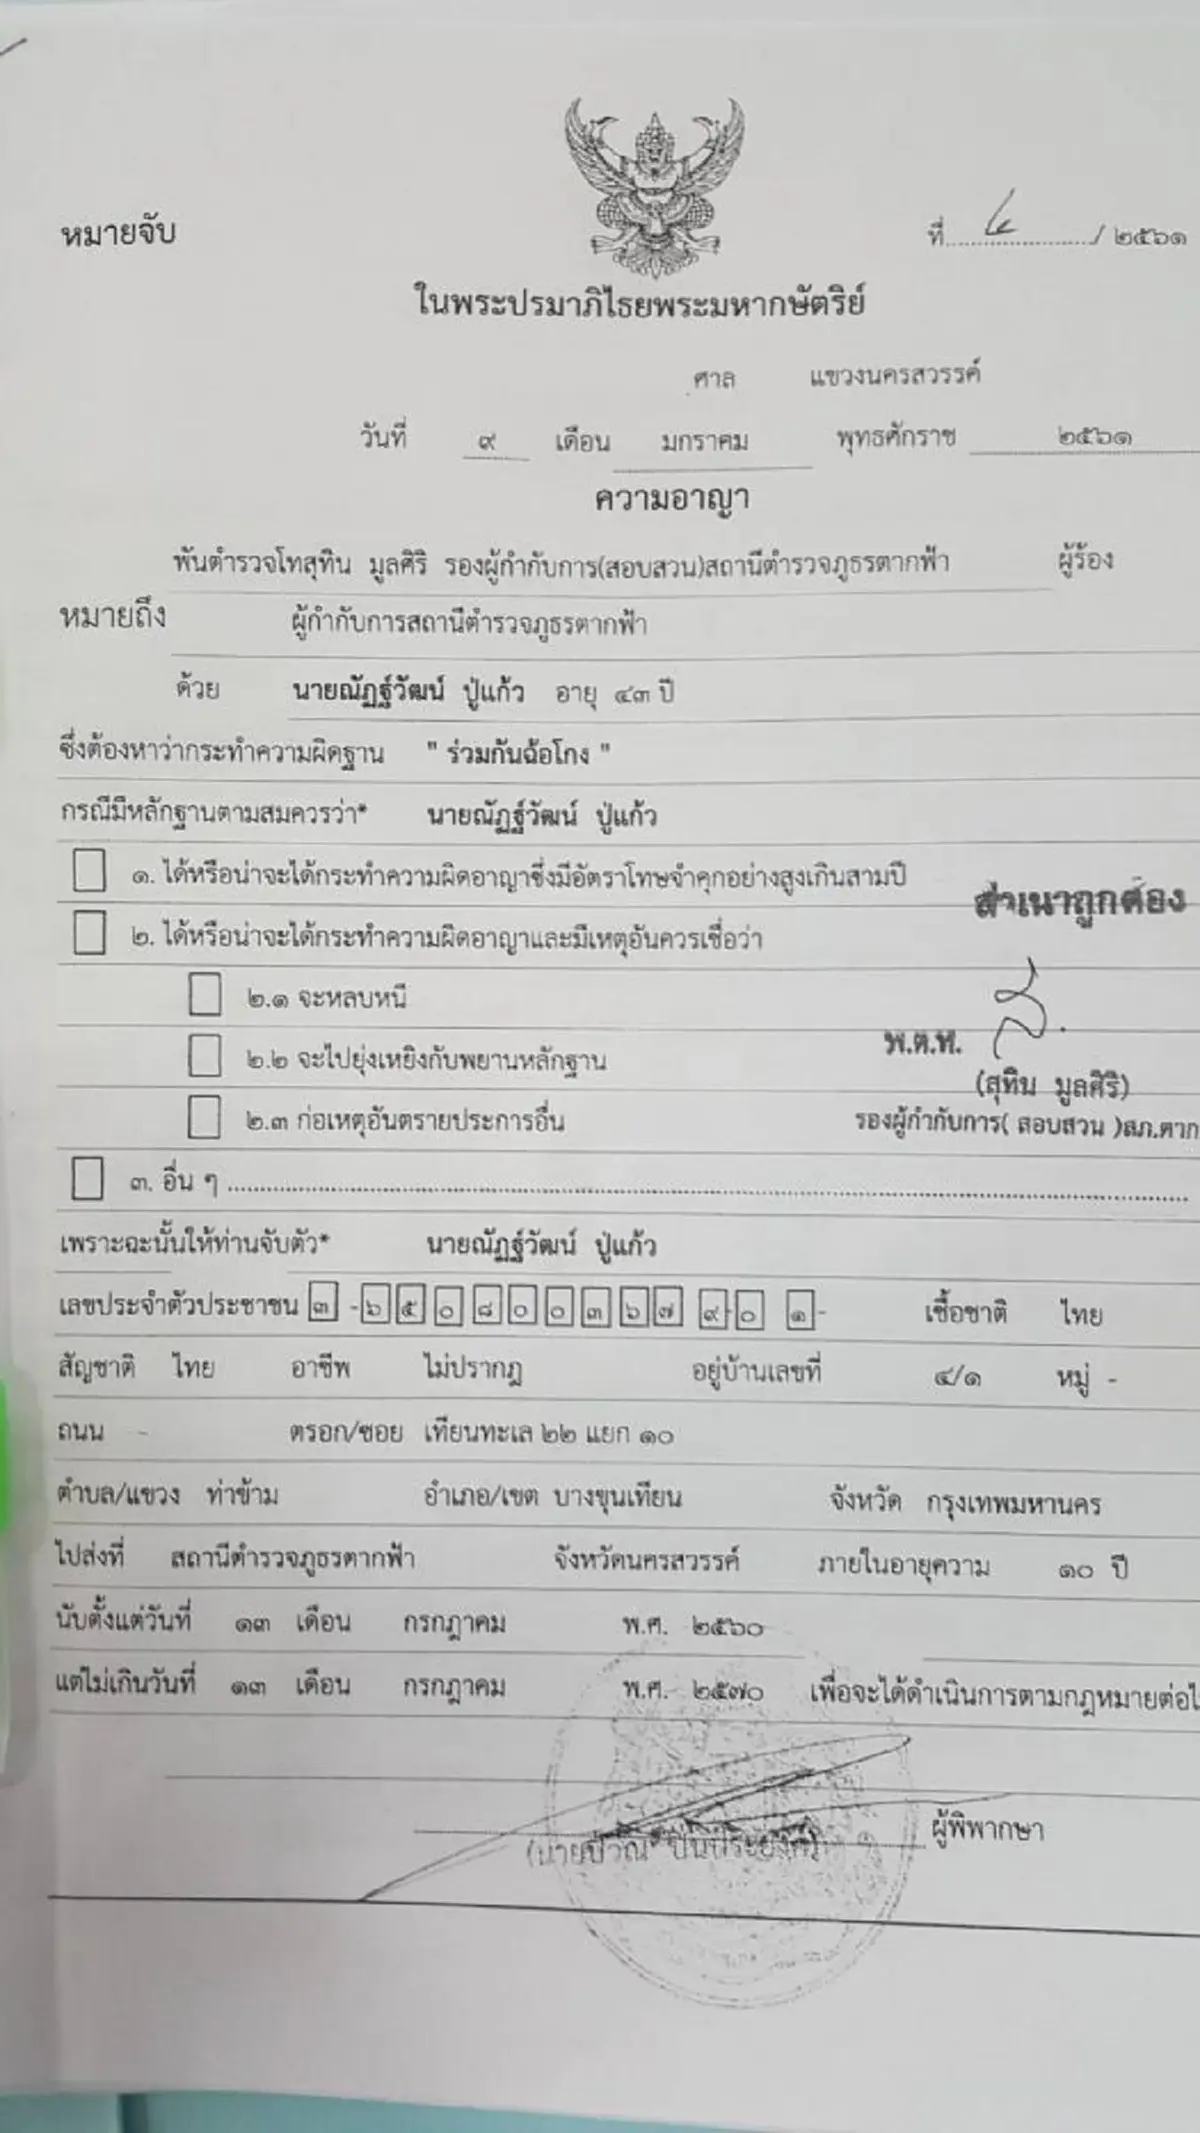 หมายจับ
ที่ ๔ / ๒๕๖๑
ในพระปรมาภิไธยพระมหากษัตริย์
ศาล แขวงนครสวรรค์
วันที่ ๙ เดือน มกราคม พุทธศักราช ๒๕๖๑
ความอาญา
พันตำรวจโทสุทิน มูลศิริ รองผู้กำกับการ(สอบสวน)สถานีตำรวจภูธรตากฟ้า ผู้ร้อง
หมายถึง ผู้กำกับการสถานีตำรวจภูธรตากฟ้า
ด้วย นายณัฏฐ์วัฒน์ ปู่แก้ว อายุ ๔๓ ปี
ซึ่งต้องหาว่ากระทำความผิดฐาน " ร่วมกันฉ้อโกง "
กรณีมีหลักฐานตามสมควรว่า* นายณัฏฐ์วัฒน์ ปู่แก้ว
๑. ได้หรือน่าจะได้กระทำความผิดอาญาซึ่งมีอัตราโทษจำคุกอย่างสูงเกินสามปี
สำเนาถูกต้อง
๒. ได้หรือน่าจะได้กระทำความผิดอาญาและมีเหตุอันควรเชื่อว่า
๒.๑ จะหลบหนี
พ.ต.ท.
๒.๒ จะไปยุ่งเหยิงกับพยานหลักฐาน
(สุทิน มูลศิริ)
๒.๓ ก่อเหตุอันตรายประการอื่น
รองผู้กำกับการ( สอบสวน )สภ.ตาก
๓. อื่น ๆ
เพราะฉะนั้นให้ท่านจับตัว* นายณัฏฐ์วัฒน์ ปู่แก้ว
เลขประจำตัวประชาชน ๓ -๖ ๕ ๐ ๘ ๐ ๐ ๓ ๖ ๗ ๙-๐ ๑- เชื้อชาติ ไทย
สัญชาติ ไทย อาชีพ ไม่ปรากฏ อยู่บ้านเลขที่ ๔/๑ หมู่ -
ถนน - ตรอก/ซอย เทียนทะเล ๒๒ แยก ๑๐
ตำบล/แขวง ท่าข้าม อำเภอ/เขต บางขุนเทียน จังหวัด กรุงเทพมหานคร
ไปส่งที่ สถานีตำรวจภูธรตากฟ้า จังหวัดนครสวรรค์ ภายในอายุความ ๑๐ ปี
นับตั้งแต่วันที่ ๑๓ เดือน กรกฎาคม พ.ศ. ๒๕๖๐
แต่ไม่เกินวันที่ ๑๓ เดือน กรกฎาคม พ.ศ. ๒๕๗๐ เพื่อจะได้ดำเนินการตามกฎหมายต่อไ
ผู้พิพากษา